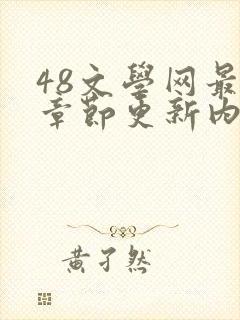 48文學网最
章節更新内
黄子然